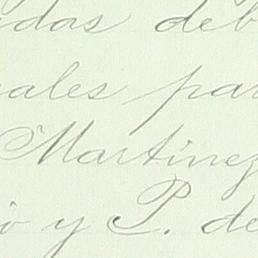 idas deb
ales par
Martinez
o y P. de